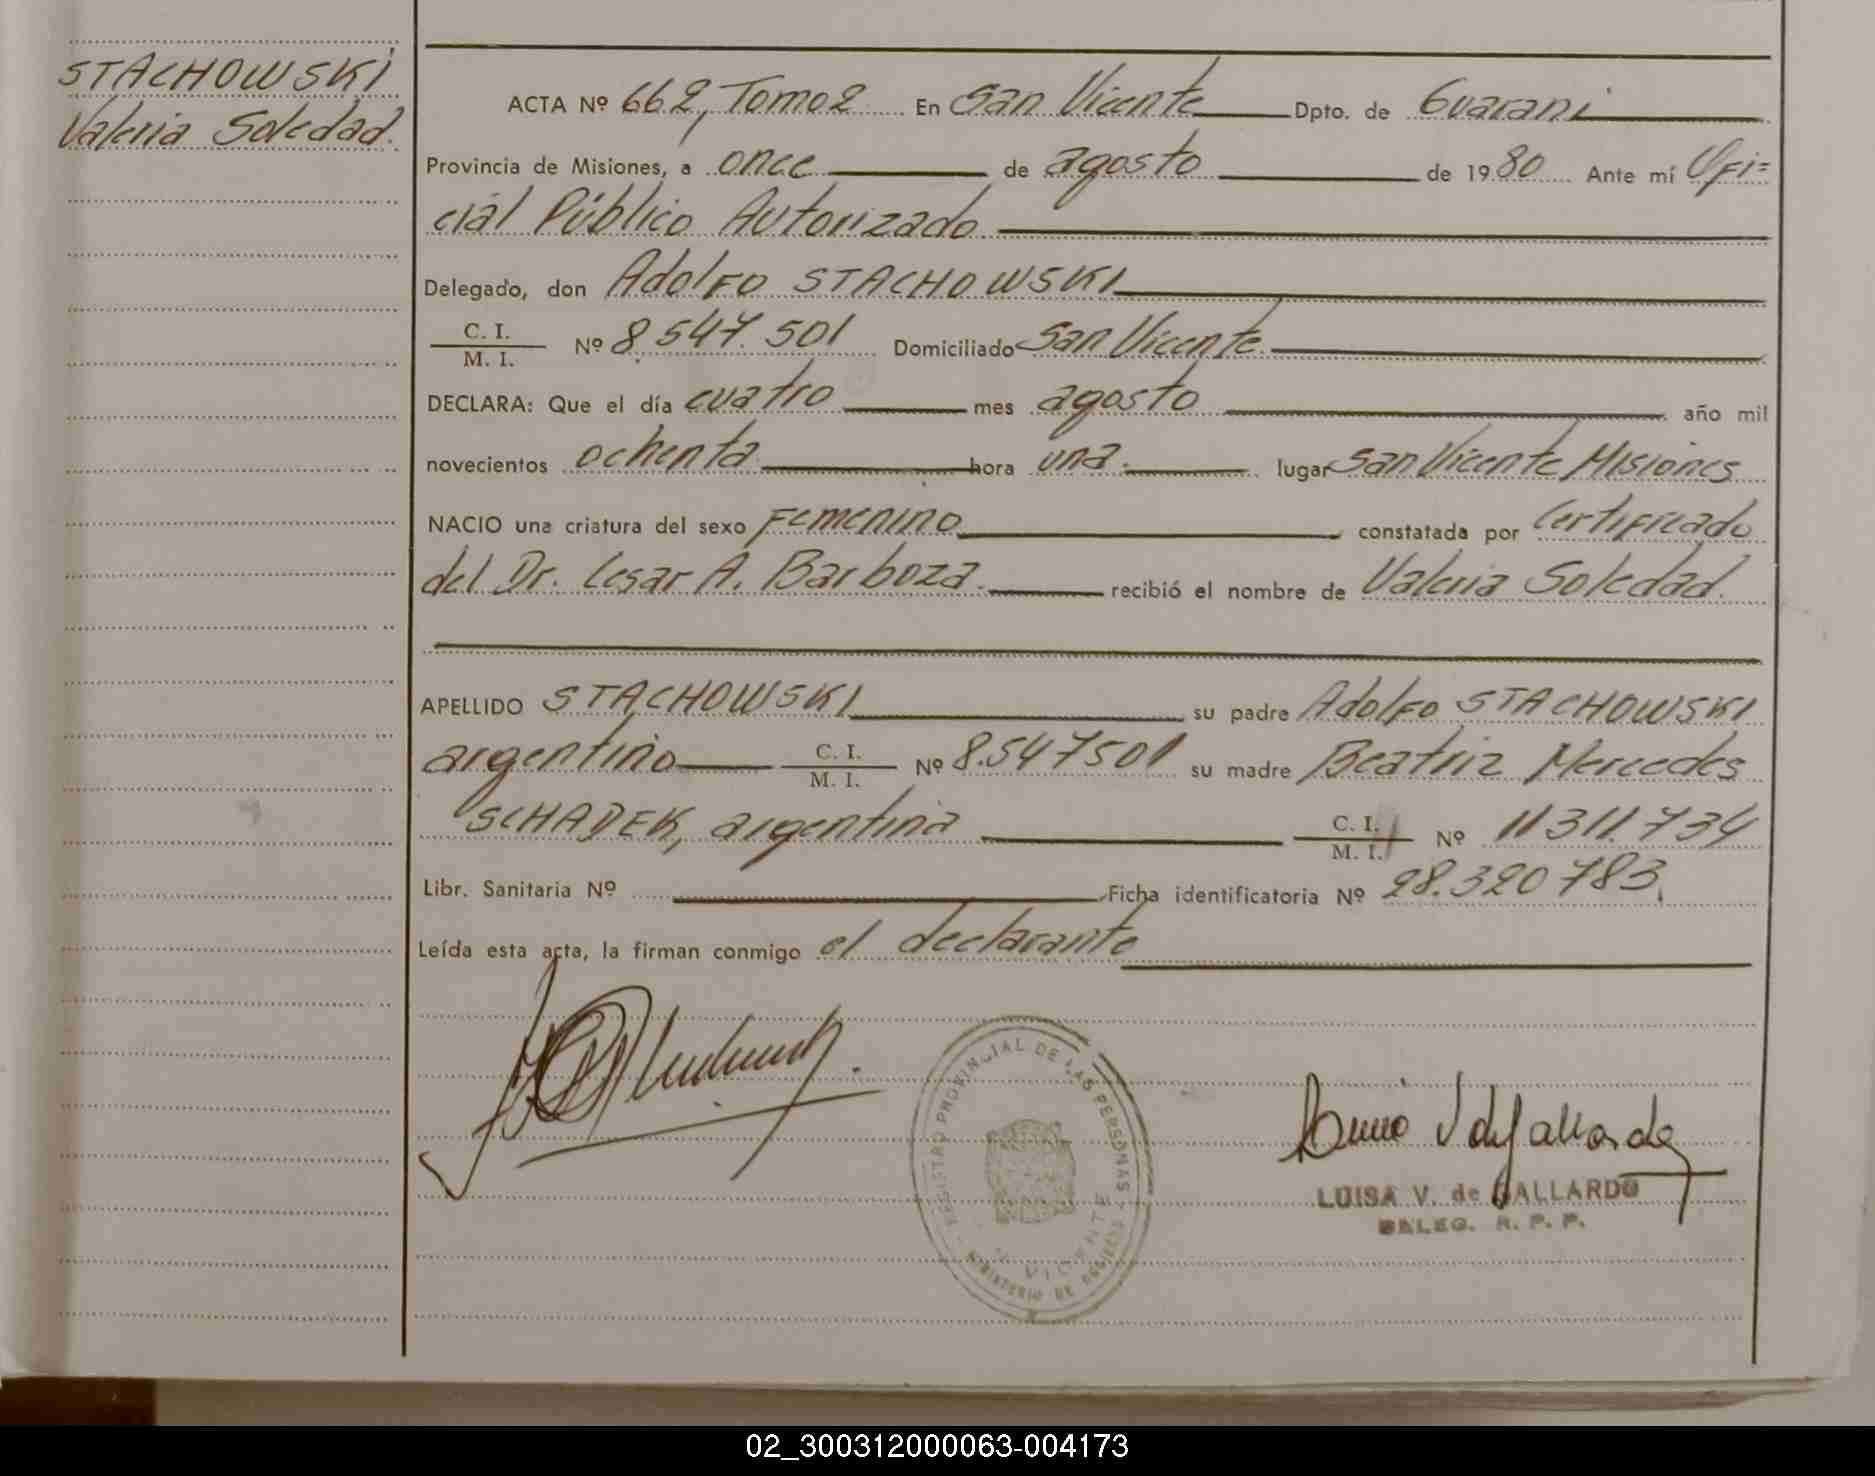 STACHOWSKI
Valeria Soledad.
ACTA Nº 662, Tomo 2 En San Vicente Dpto. de Guarani
Provincia de Misiones, a once de agosto de 1980 Ante mí Ofi=
cial Público Autorizado
Delegado, don Adolfo STACHOWSKI
C. I.
M. I. Nº 8.547.501 Domiciliado San Vicente
DECLARA: Que el día cuatro mes agosto año mil
novecientos ochenta hora una. lugar San Vicente Misiones
NACIO una criatura del sexo Femenino constatada por Certificado
del Dr. Cesar A. Barboza. recibió el nombre de Valeria Soledad.
APELLIDO STACHOWSKI su padre Adolfo STACHOWSKI
argentino C. I.
M. I. Nº 8.547501 su madre Beatriz Mercedes
SCHADEK, argentina C. I.
M. I. Nº 11311.734
Libr. Sanitaria Nº Ficha identificatoria Nº 28.320783.
Leída esta acta, la firman conmigo el declarante
REGISTRO PROVINCIAL DE LAS PERSONAS
VICENTE
MINISTERIO DE
LUISA V. de GALLARDO
DELEG. R. P. P.
02_300312000063-004173